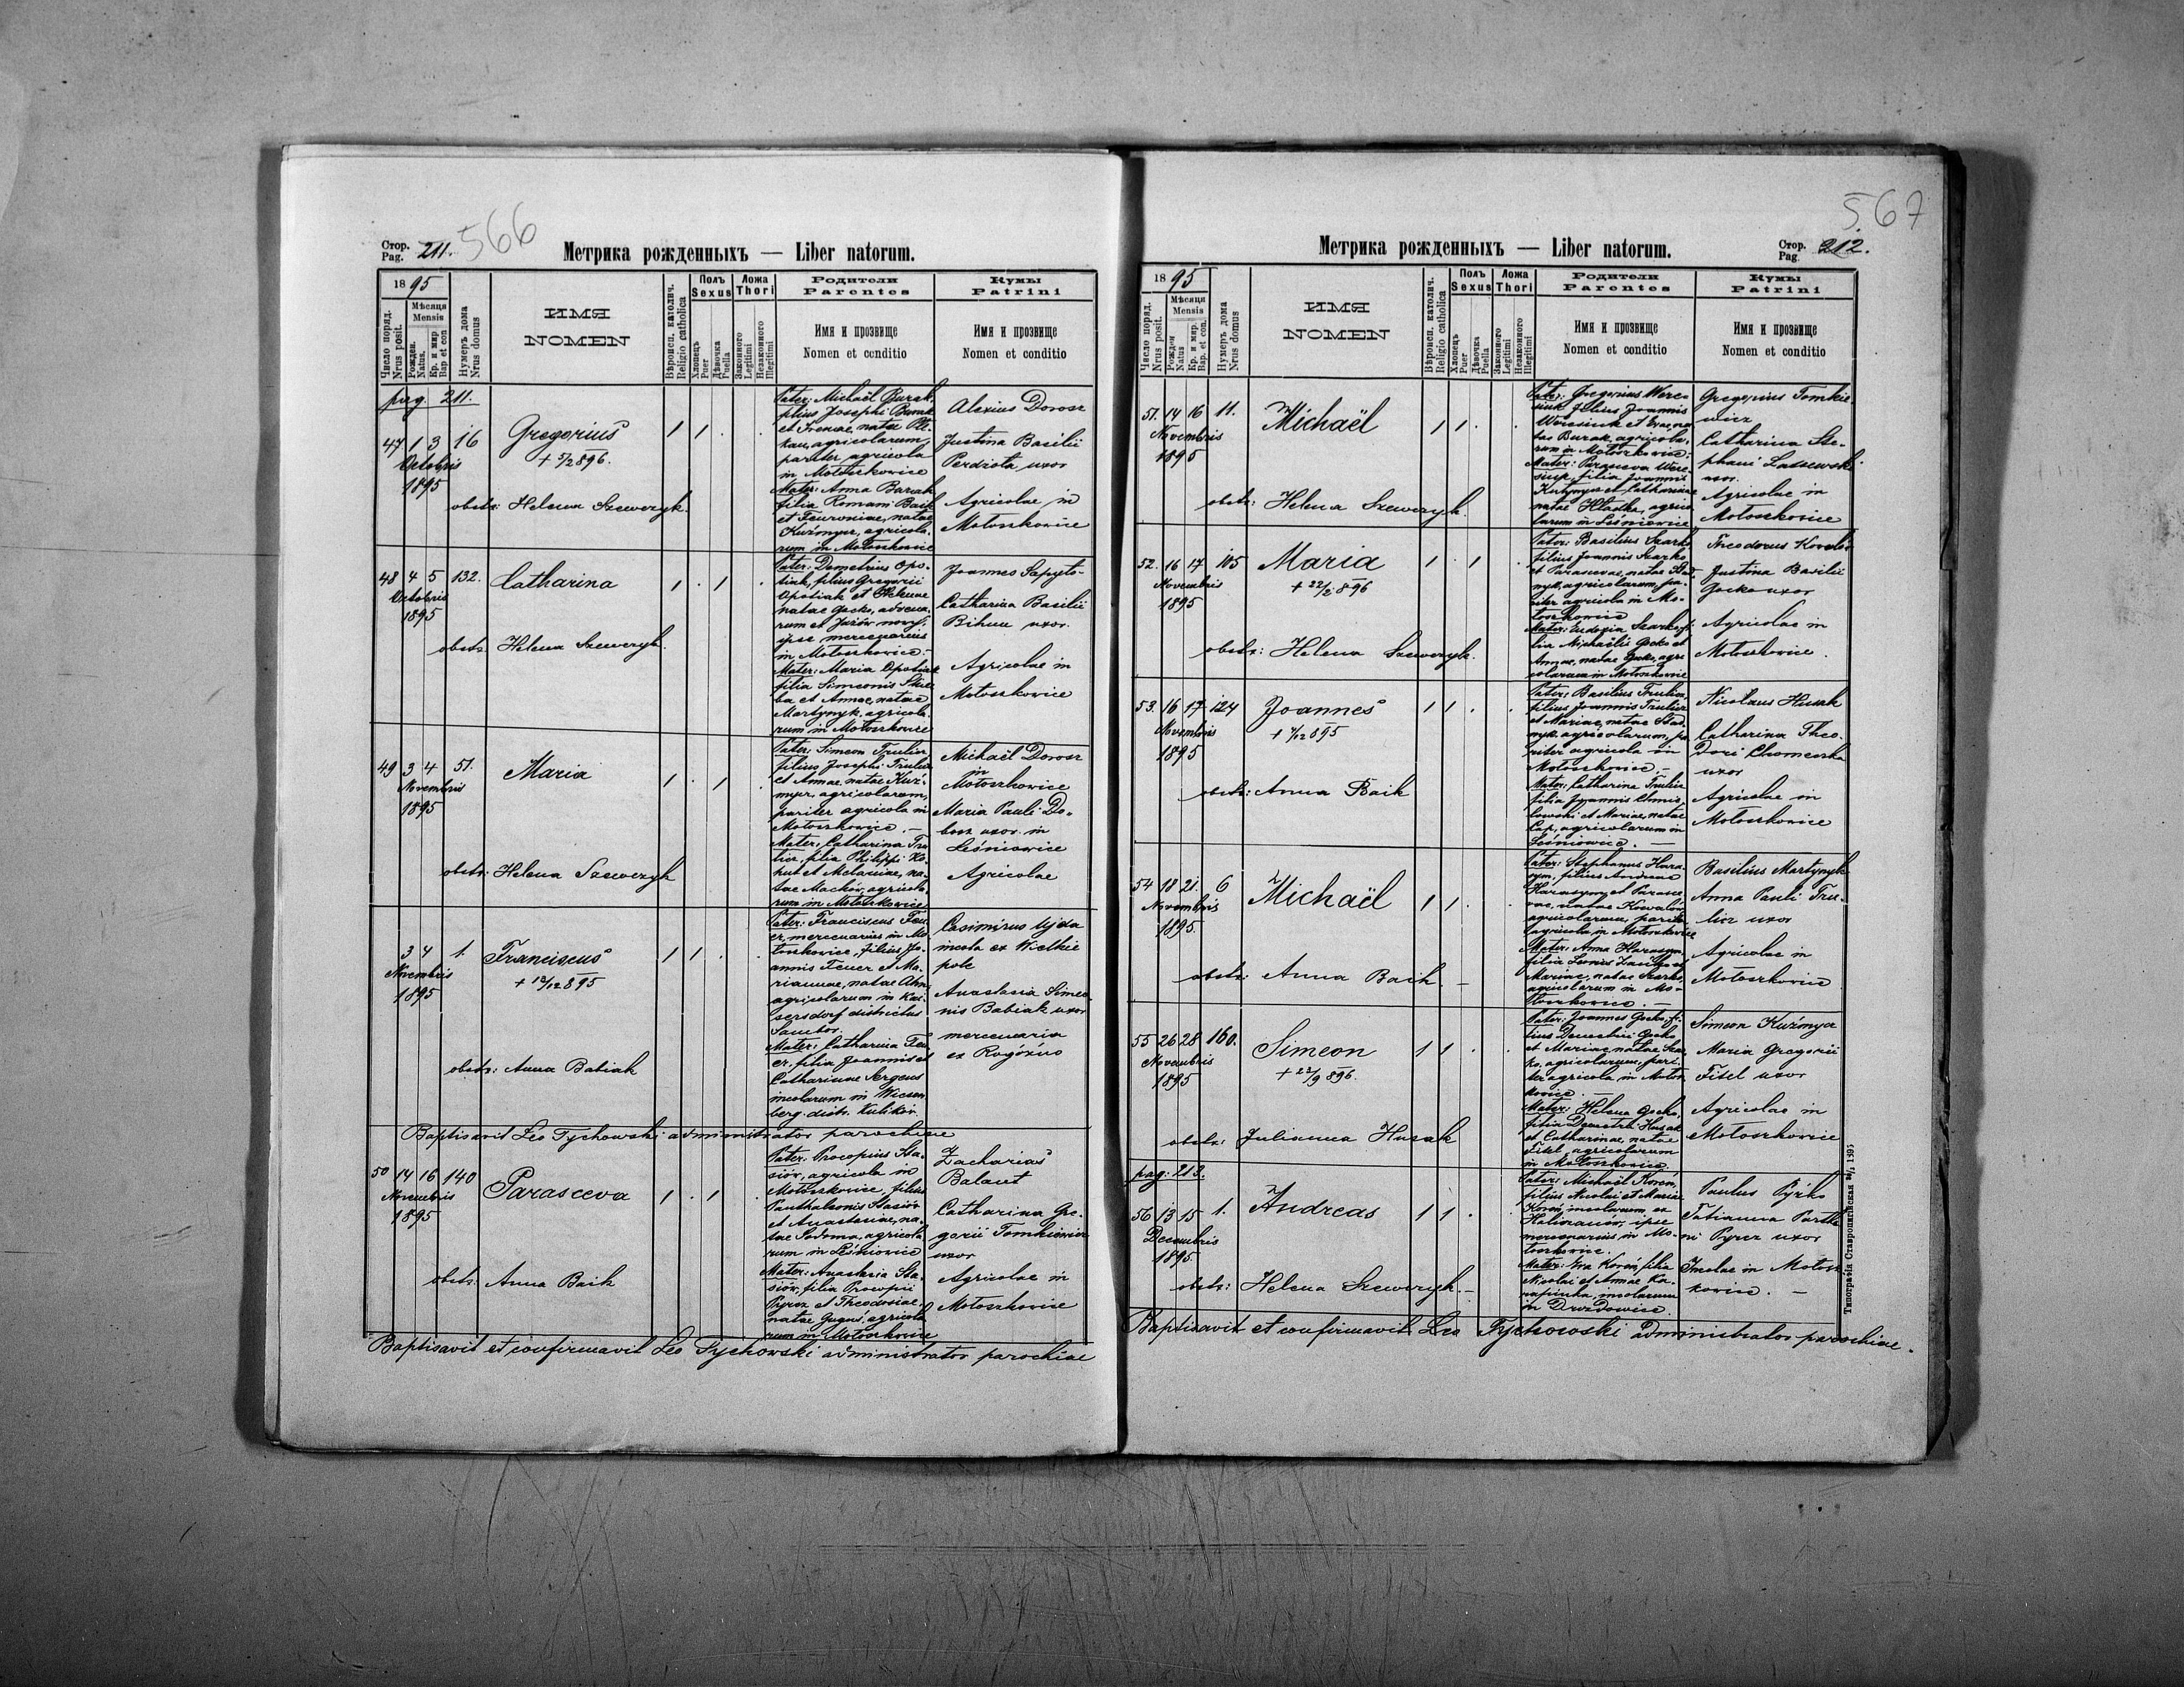 Стор.
Pag. 211.
566
Метрика рожденныхъ — Liber natorum.
1895
Число поряд.
Nrus posit.
Мѣсяця
Mensis
Рожден.
Natus.
Кр. и мир
Bap et con
Нумеръ дома
Nrus domus
ИМЯ
NOMEN
Вѣроисп. католич.
Religio catholica
Полъ
Sexus
Хлопець
Puer
Дѣвочка
Puella
Ложа
Thori
Законного
Legitimi
Незаконного
Illegitimi
Родители
Parentes
Имя и прозвище
Nomen et conditio
Кумы
Patrini
Имя и прозвище
Nomen et conditio
pag. 211.
47 1 3 16
Octobris
1895
Gregorius
obstr: Helena Szewczyk.
1 1 . .
Pater: Michaël Burak
filius Josephi Burak
et Irenae, natae
agricolarum,
pariter agricola
in Motoszkowice
Mater: Anna Burak
filia Romani Baik
et Feuroniae, natae
Kuźmycz, agricola-
rum in Motoszkowice
Alexius Dorosz
Justina Basilii
Perdiota uxor
Agricolae in
Motoszkowice
48 4 5 132.
Octobris
1895
Catharina
obstr. Helena Szewczyk.
1 . 1 .
Pater: Demetrius Opo-
tiak, filius Gregorii
Opotiak et Helenae
natae Gocko, advena-
rum et
ipse mercenarius
in Motoszkowice.-
Mater: Maria Opotiak
filia Simeonis
ba et Annae, natae
Martynyk, agricola-
rum in Motoszkowice
Joannes
Catharina Basilii
Bihun uxor.
Agricolae in
Motoszkowice
49 3 4 51.
Novembris
1895
Maria
obstr: Helena Szewczyk
1 . 1 .
Pater: Simeon Trulicz
filius Josephi Trulicz
et Annae, natae Kuź-
mycz, agricolarum,
pariter agricola in
Motoszkowice. —
Mater: Catharina Tru
licz, filia Philippi Ko-
hut et Melaniae, na-
tae Mackiw, agricola-
rum in Motoszkowice
Michaël Dorosz
in
Motoszkowice
Maria Pauli Do-
bosz uxor in
Leśniowice
Agricolae
3 4 1.
Novembris
1895
Franciscus
+ 12/12 895
obstr: Anna Babiak
1 1 . .
Pater: Franciscus Feu-
er, mercenarius in Mo-
toszkowice, filius Jo-
annis Feuer et Ma-
riannae, natae
agricolarum in Kai-
sersdorf districtus
Sambor.
Mater: Catharina Feu-
er, filia Joannis et
Catharinae Sergens
incolarum in Wiesen
berg distr. Kulików.
Casimirus
incola ex Wielkie
pole
Anastasia Simeo-
nis Babiak uxor
mercenaria
ex Rogóźno
Baptisavit Leo Tychowski administrator parochiae
50 14 16 140
Novembris
1895
Parasceva
obstr: Anna Baik
1 . 1 .
Pater: Procopius Sta-
siów, agricola in
Motoszkowice, filius
Panthaleonis Stasiów
et Anastasiae, na-
tae agricola
rum in Leśniowice
Mater: Anastasia Sta-
siów, filia Procopii
Pyrcz et Theodosiae,
natae agricola
rum in Motoszkowice
Zacharias
Balaut
Catharina Gre-
gorii Tomkiewicz
uxor
Agricolae in
Motoszkowice
Baptisavit et confirmavit Leo Tychowski administrator parochiae
567
Метрика рожденныхъ — Liber natorum.
Стор.
Pag. 212.
1895
Число поряд.
Nrus posit.
Мѣсяця
Mensis
Рожден
Natus
Кр. и мир.
Bap. et con.
Нумеръ дома
Nrus domus
ИМЯ
NOMEN
Вѣроисп. католич.
Religio catholica
Полъ
Sexus
Хлопець
Puer
Дѣвочка
Puella
Ложа
Thori
Законного
Legitimi
Незаконного
Illegitimi
Родители
Parentes
Имя и прозвище
Nomen et conditio
Кумы
Patrini
Имя и прозвище
Nomen et conditio
51. 14 16 11.
Novembris
1895
Michaël
obstr: Helena Szewczyk.
1 1 . .
Pater: Gregorius Were-
siuk filius Joannis
Weresiuk et Evae, na-
tae Burak, agricola-
rum in Motoszkowice.
Mater: Parasceva Were-
siuk, filia Joannis
et Catharinae
natae Hladka, agrico
larum in Leśniowice
Gregorius Tomkie-
wicz
Catharina Ste-
phani
uxor.
Agricolae in
Motoszkowice
52. 16 17 105
Novembris
1895
Maria
+ 22/2 896
obstr: Helena Szewczyk.
1 . 1 .
Pater: Basilius Szarko
filius Joannis Szarko
et Parascevae, natae
agricolarum, pa-
riter agricola in Mo-
toszkowice
Mater: Eudoxia Szarko, fi-
lia Michaëlis Gocko et
Annae, natae Gocko, agri
colarum in Motoszkowice
Theodorus
Justina Basilii
Gocko uxor
Agricolae in
Motoszkowice.
53. 16 17 124
Novembris
1895
Joannes
obstr: Anna Baik
1 1 . .
Pater: Basilius Trulicz,
filius Joannis Trulicz
et Mariae, natae
agricolarum, pa-
riter agricola in
Motoszkowice. —
Mater: Catharina Trulicz
filia Joannis
et Mariae, natae
Cap, agricolarum in
Leśniowice. —
Nicolaus Husak
Catharina Theo-
dori
uxor
Agricolae in
Motoszkowice
54 18 21. 6
Novembris
1895
Michaël
obstr: Anna Baik. —
1 1 . .
Pater: Stephanus Hara-
sym, filius Andreae
Harasym et Parasce-
vae, natae Kowalów
agricolarum, pariter
agricola in Motoszkowice
Mater: Anna Harasym,
filia et
Mariae, natae Szarko,
agricolarum in Mo-
toszkowice. —
Basilius Martynyk
Anna Pauli Tru-
licz uxor
Agricolae in
Motoszkowice
55 26 28 160.
Novembris
1895
Simeon
+ 23/9 896.
obstr: Julianna Husak
1 1 . .
Pater: Joannes Gocko, fi-
lius Demetrii Gocko
et Mariae, natae Szar
ko, agricolarum, pari-
ter agricola in Motosz
kowice. —
Mater: Helena Gocko,
filia Demetrii Husak
et Catharinae, natae
Fitel, agricolarum
in Motoszkowice.
Simeon Kuźmycz
Maria Gregorii
Fitel uxor
Agricolae in
Motoszkowice
pag: 213.
56 13 15 1.
Decembris
1895
Andreas
obstr: Helena Szewczyk. —
1 1 . .
Pater: Michaël Koreń,
filius Nicolai et Mariae
Koreń, incolarum ex
ipse
mercenarius in Mo-
toszkowice.
Mater: Eva Koreń, filia
Nicolai et Annae Ka-
incolarum
in Drozdowice.
Paulus Pyrko
Tatianna
Pyrcz uxor
Incolae in Motosz
kowice. —
Baptisavit et confirmavit Leo Tychowski administrator parochiae.